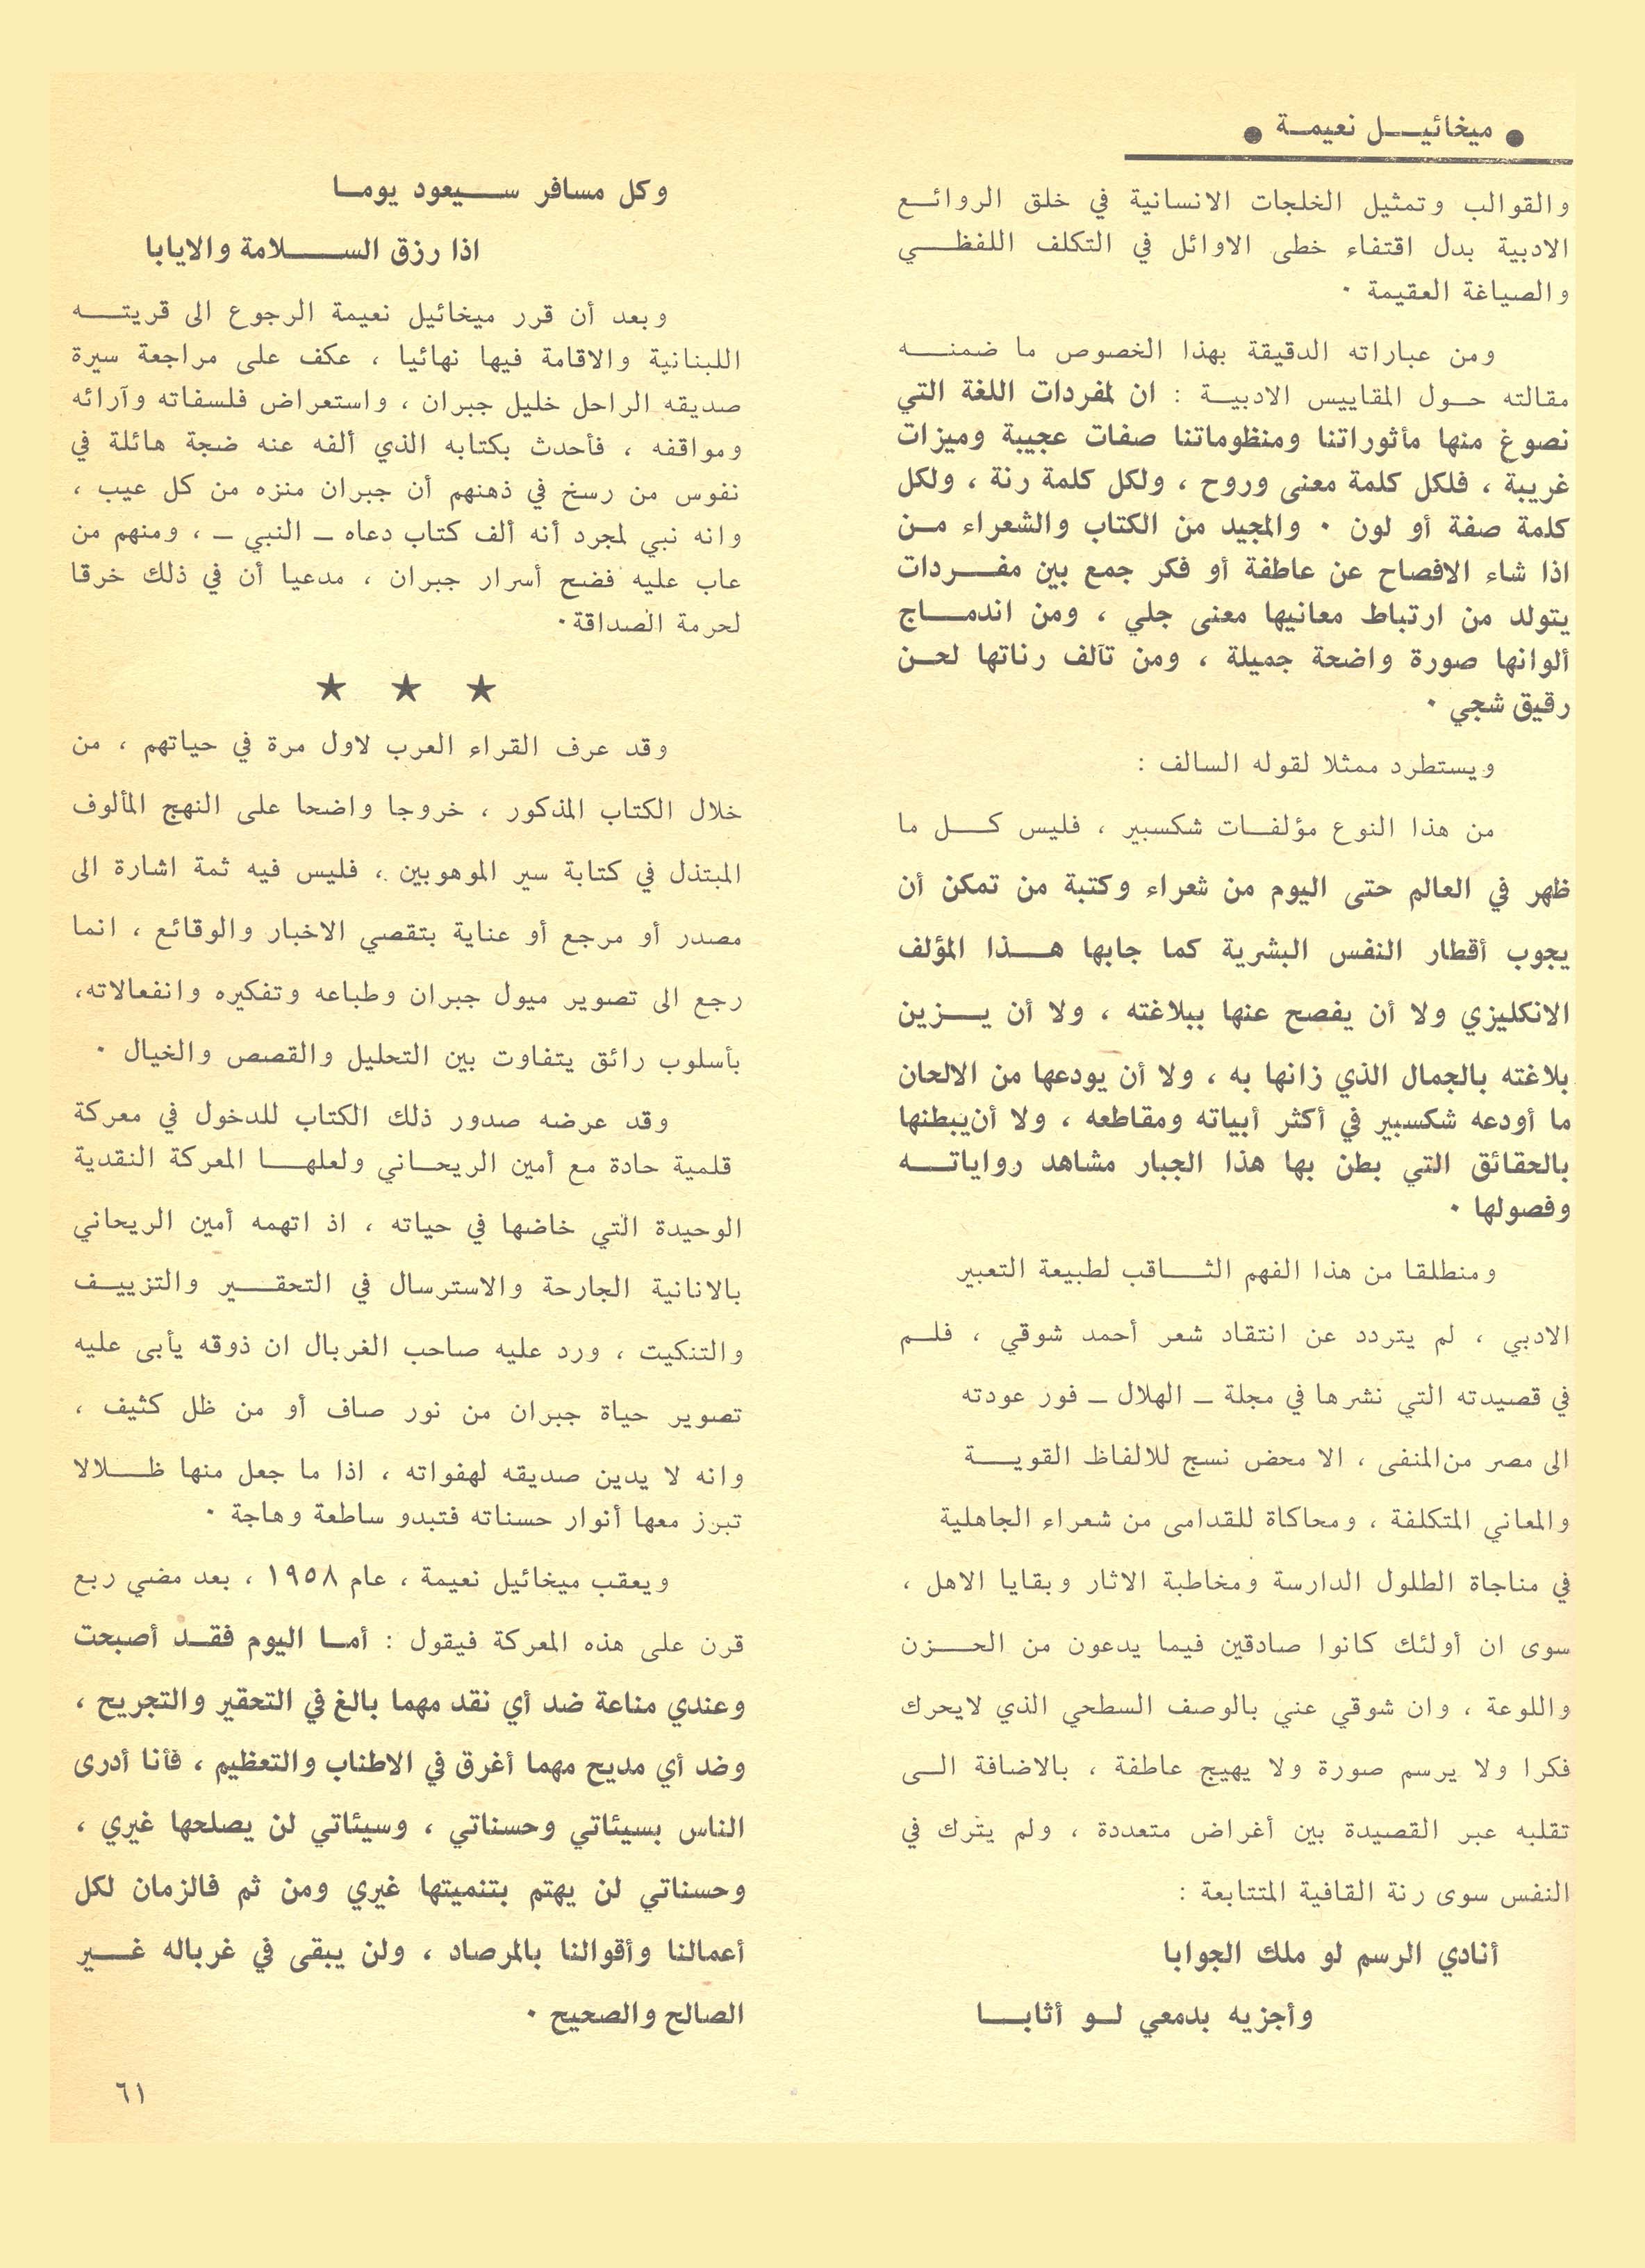 ● ميخائيل نعيمة ●
والقوالب وتمثيل الخلجات الانسانية في خلق الروائع
الادبية بدل اقتفاء خطى الاوائل في التكلف اللفظي
والصياغة العقيمة ٠
ومن عباراته الدقيقة بهذا الخصوص ما ضمنه
مقالته حول المقاييس الادبية : ان لمفردات اللغة التي
نصوغ منها مأثوراتنا ومنظوماتنا صفات عجيبة وميزات
غريبة ، فلكل كلمة معنى وروح ، ولكل كلمة رنة ، ولكل
كلمة صفة أو لون ٠ والمجيد من الكتاب والشعراء من
اذا شاء الافصاح عن عاطفة أو فكر جمع بين مفردات
يتولد من ارتباط معانيها معنى جلي ، ومن اندماج
ألوانها صورة واضحة جميلة ، ومن تآلف رناتها لحن
رقيق شجي ٠
ويستطرد ممثلا لقوله السالف :
من هذا النوع مؤلفات شكسبير ، فليس كل ما
ظهر في العالم حتى اليوم من شعراء وكتبة من تمكن أن
يجوب أقطار النفس البشرية كما جابها هذا المؤلف
الانكليزي ولا أن يفصح عنها ببلاغته ، ولا أن يزين
بلاغته بالجمال الذي زانها به ، ولا أن يودعها من الالحان
ما أودعه شكسبير في أكثر أبياته ومقاطعه ، ولا أن يبطنها
بالحقائق التي بطن بها هذا الجبار مشاهد رواياته
وفصولها ٠
ومنطلقا من هذا الفهم الثاقب لطبيعة التعبير
الادبي ، لم يتردد عن انتقاد شعر أحمد شوقي ، فلم
في قصيدته التي نشرها في مجلة ــ الهلال ــ فور عودته
الى مصر من المنفى ، الا محض نسج للالفاظ القوية
والمعاني المتكلفة ، ومحاكاة للقدامى من شعراء الجاهلية
في مناجاة الطلول الدارسة ومخاطبة الاثار وبقايا الاهل ،
سوى ان أولئك كانوا صادقين فيما يدعون من الحزن
واللوعة ، وان شوقي عني بالوصف السطحي الذي لايحرك
فكرا ولا يرسم صورة ولا يهيج عاطفة ، بالاضافة الى
تقلبه عبر القصيدة بين أغراض متعددة ، ولم يترك في
النفس سوى رنة القافية المتتابعة :
أنادي الرسم لو ملك الجوابا
وأجزيه بدمعي لو أثابا
وكل مسافر سيعود يوما
اذا رزق السلامة والايابا
وبعد أن قرر ميخائيل نعيمة الرجوع الى قريته
اللبنانية والاقامة فيها نهائيا ، عكف على مراجعة سيرة
صديقه الراحل خليل جبران ، واستعراض فلسفاته وآرائه
ومواقفه ، فأحدث بكتابه الذي ألفه عنه ضجة هائلة في
نفوس من رسخ في ذهنهم أن جبران منزه من كل عيب ،
وانه نبي لمجرد أنه ألف كتاب دعاه ــ النبي ــ ، ومنهم من
عاب عليه فضح أسرار جبران ، مدعيا أن في ذلك خرقا
لحرمة الصداقة٠
★ ★ ★
وقد عرف القراء العرب لاول مرة في حياتهم ، من
خلال الكتاب المذكور ، خروجا واضحا على النهج المألوف
المبتذل في كتابة سير الموهوبين ، فليس فيه ثمة اشارة الى
مصدر أو مرجع أو عناية بتقصي الاخبار والوقائع ، انما
رجع الى تصوير ميول جبران وطباعه وتفكيره وانفعالاته،
بأسلوب رائق يتفاوت بين التحليل والقصص والخيال ٠
وقد عرضه صدور ذلك الكتاب للدخول في معركة
قلمية حادة مع أمين الريحاني ولعلها المعركة النقدية
الوحيدة التي خاضها في حياته ، اذ اتهمه أمين الريحاني
بالانانية الجارحة والاسترسال في التحقير والتزييف
والتنكيت ، ورد عليه صاحب الغربال ان ذوقه يأبى عليه
تصوير حياة جبران من نور صاف أو من ظل كثيف ،
وانه لا يدين صديقه لهفواته ، اذا ما جعل منها ظلالا
تبرز معها أنوار حسناته فتبدو ساطعة وهاجة ٠
ويعقب ميخائيل نعيمة ، عام ١٩٥٨ ، بعد مضي ربع
قرن على هذه المعركة فيقول : أما اليوم فقد أصبحت
وعندي مناعة ضد أي نقد مهما بالغ في التحقير والتجريح ،
وضد أي مديح مهما أغرق في الاطناب والتعظيم ، فأنا أدرى
الناس بسيئاتي وحسناتي ، وسيئاتي لن يصلحها غيري ،
وحسناتي لن يهتم بتنميتها غيري ومن ثم فالزمان لكل
أعمالنا وأقوالنا بالمرصاد ، ولن يبقى في غرباله غير
الصالح والصحيح ٠
٦١